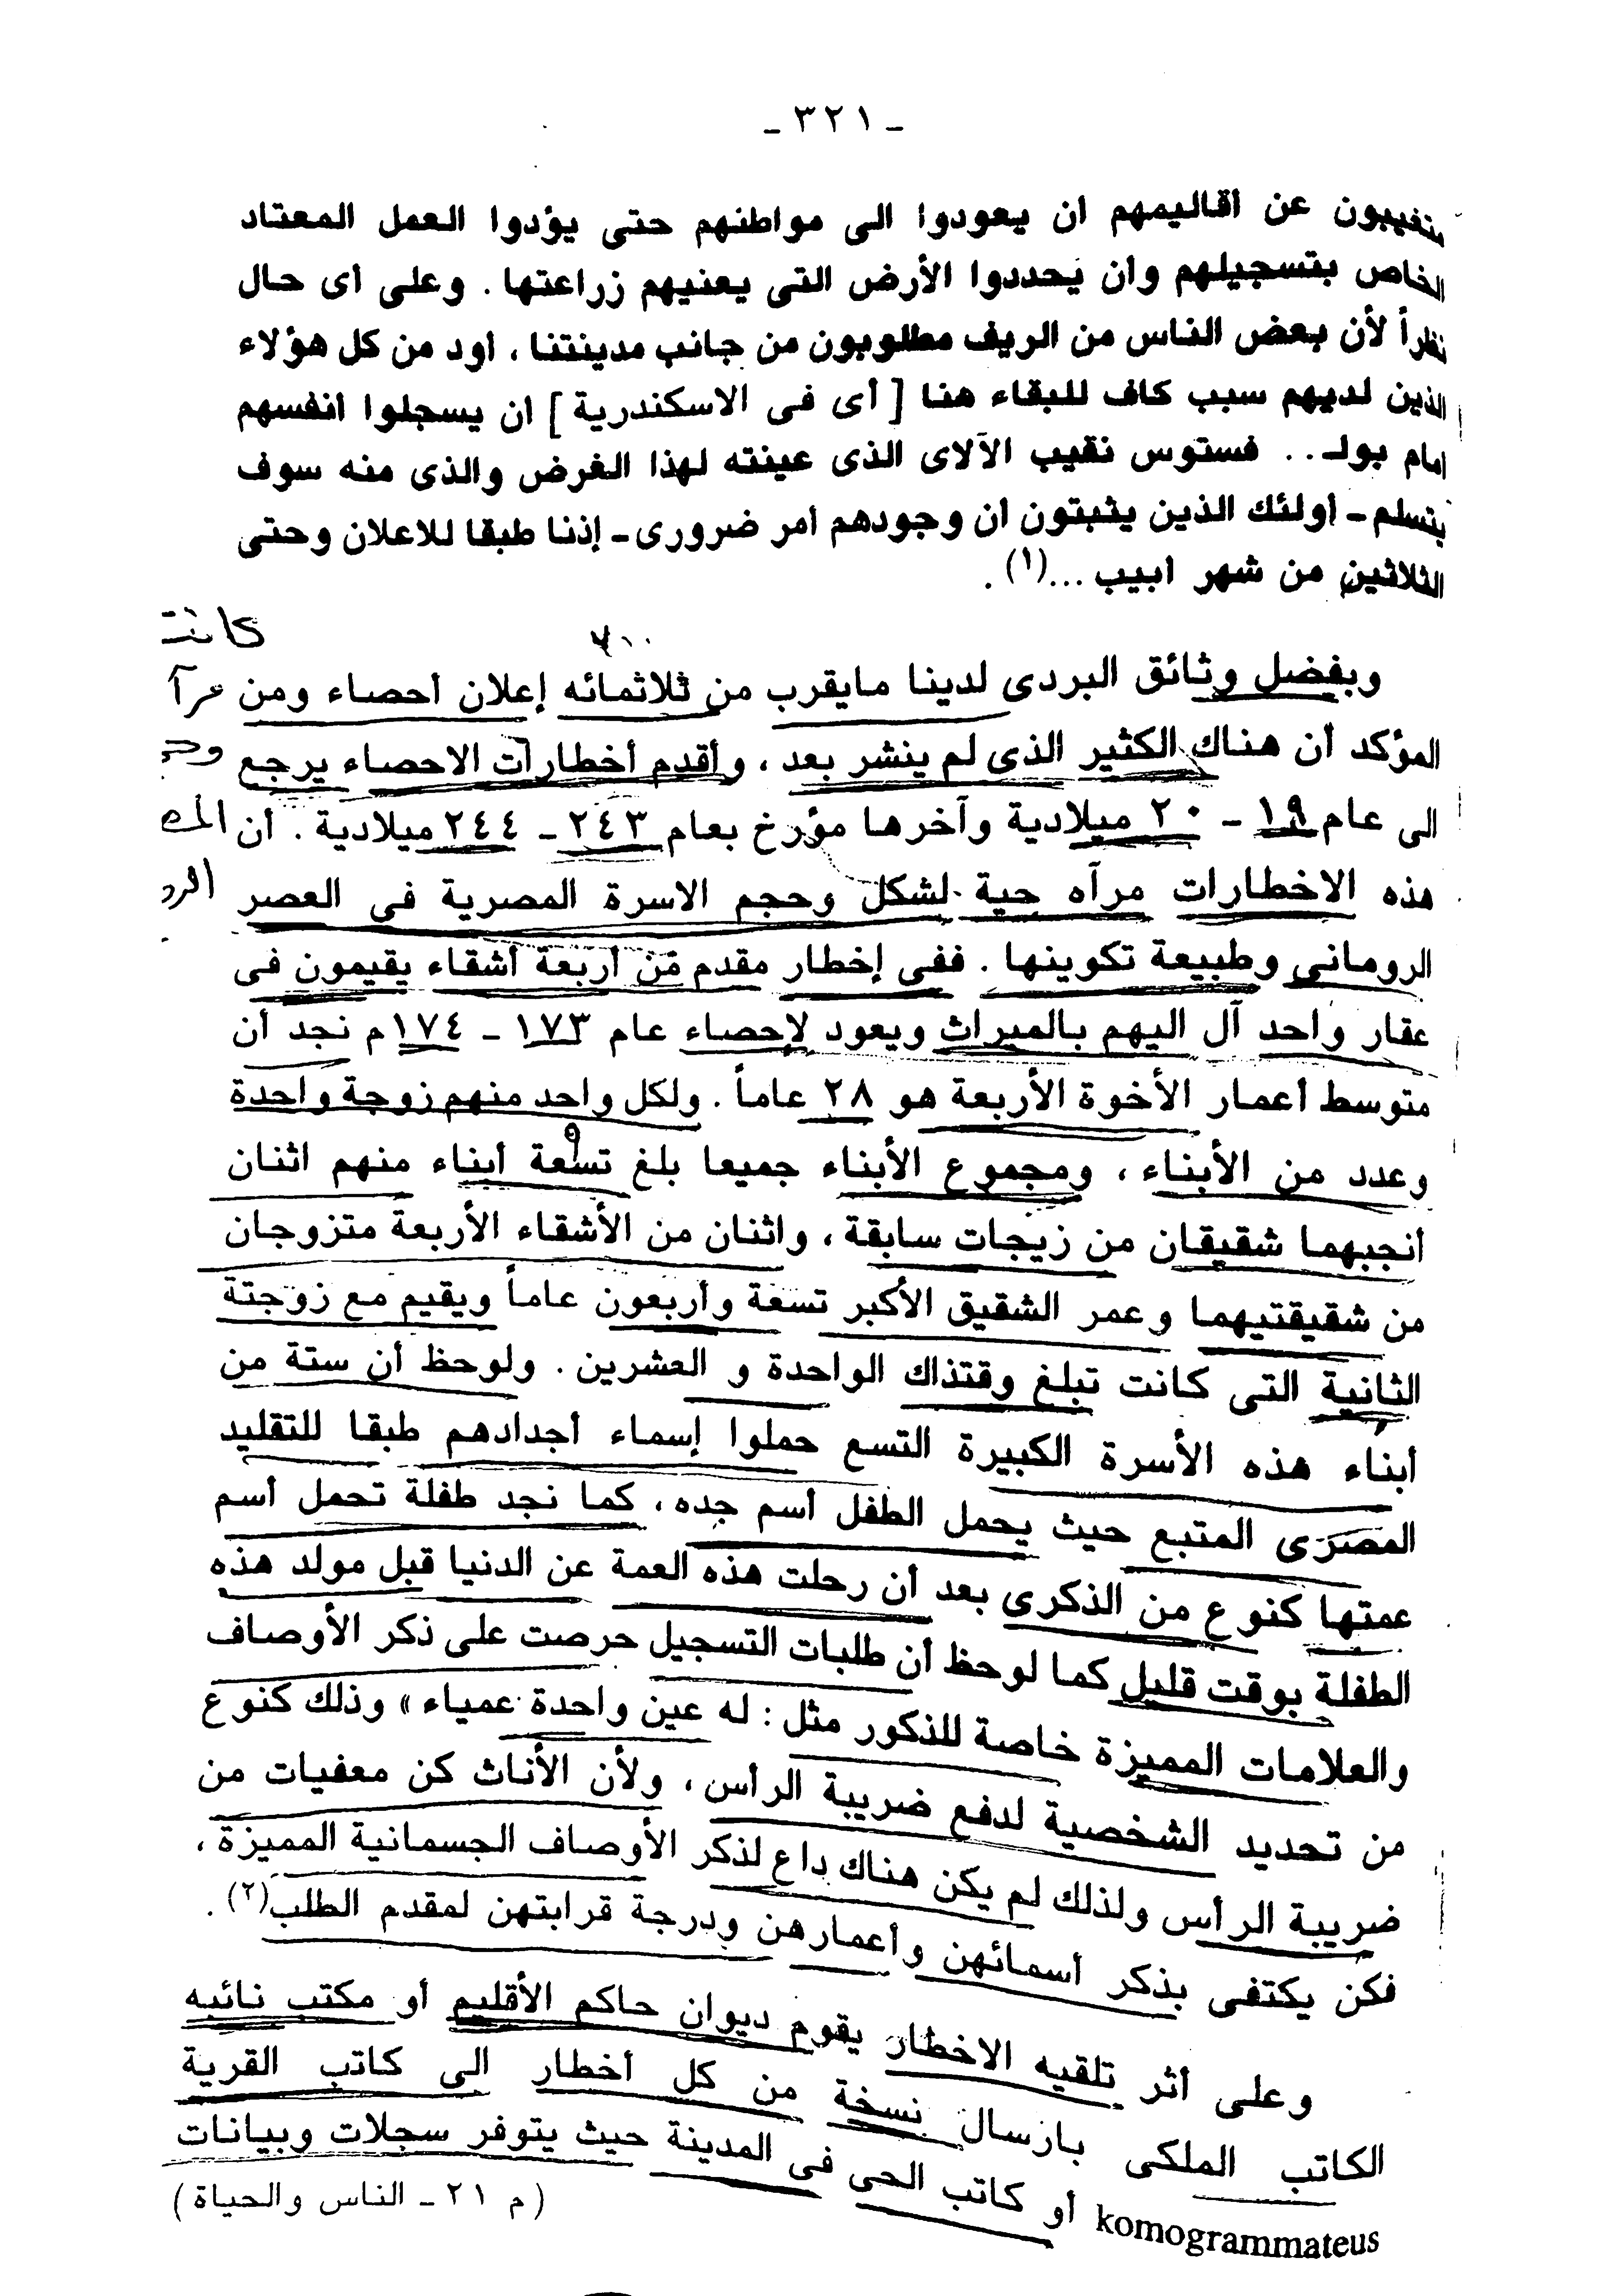 ـ ٣٢١ ـ
يتغيبون عن أقاليمهم أن يعودوا الى مواطنهم حتى يؤدوا العمل المعتاد
الخاص بتسجيلهم وأن يحددوا الأرض التى يعنيهم زراعتها . وعلى أى حال
نظراً لأن بعض الناس من الريف مطلوبون من جانب مدينتنا ، أود من كل هؤلاء
الذين لديهم سبب كاف للبقاء هنا [ أى فى الاسكندرية ] أن يسجلوا أنفسهم
أمام بولـ .. فستوس نقيب الآلاى الذى عينته لهذا الغرض والذى منه سوف
يتسلم ـ أولئك الذين يثبتون أن وجودهم أمر ضرورى ـ إذنا طبقا للاعلان وحتى
الثلاثين من شهر أبيب ...(١) .
كانت
٣٠٠
وبفضل وثائق البردى لدينا مايقرب من ثلاثمائه إعلان أحصاء ومن
المؤكد أن هناك الكثير الذى لم ينشر بعد ، وأقدم أخطارات الاحصاء يرجع
الى عام ١٩ ـ ٢٠ ميلادية وآخرها مؤرخ بعام ٢٤٣ ـ ٢٤٤ ميلادية . أن
هذه الاخطارات مرآه حية لشكل وحجم الاسرة المصرية فى العصر
الرومانى وطبيعة تكوينها . ففى إخطار مقدم من أربعة أشقاء يقيمون فى
عقار واحد آل اليهم بالميراث ويعود لإحصاء عام ١٧٣ ـ ١٧٤م نجد أن
متوسط أعمار الأخوة الأربعة هو ٢٨ عاماً . ولكل واحد منهم زوجة واحدة
وعدد من الأبناء ، ومجموع الأبناء جميعا بلغ تسعة أبناء منهم اثنان
٩
أنجبهما شقيقان من زيجات سابقة ، واثنان من الأشقاء الأربعة متزوجان
من شقيقتيهما وعمر الشقيق الأكبر تسعة وأربعون عاماً ويقيم مع زوجتة
الثانية التى كانت تبلغ وقتذاك الواحدة و العشرين . ولوحظ أن ستة من
أبناء هذه الأسرة الكبيرة التسع حملوا إسماء أجدادهم طبقا للتقليد
المصرى المتبع حيث يحمل الطفل أسم جده ، كما نجد طفلة تحمل أسم
عمتها كنوع من الذكرى بعد أن رحلت هذه العمة عن الدنيا قبل مولد هذه
الطفلة بوقت قليل كما لوحظ أن طلبات التسجيل حرصت على ذكر الأوصاف
والعلامات المميزة خاصة للذكور مثل : له عين واحدة عمياء » وذلك كنوع
من تحديد الشخصية لدفع ضريبة الرأس ، ولأن الأناث كن معفيات من
ضريبة الرأس ولذلك لم يكن هناك داع لذكر الأوصاف الجسمانية المميزة ،
فكن يكتفى بذكر أسمائهن وأعمارهن ودرجة قرابتهن لمقدم الطلب(٢) .
وعلى أثر تلقيه الاخطار يقوم ديوان حاكم الأقليم أو مكتب نائبه
الكاتب الملكى بارسال نسخة من كل أخطار الى كاتب القرية
komogrammateus أو كاتب الحى فى المدينة حيث يتوفر سجلات وبيانات
( م ٢١ ـ الناس والحياة )